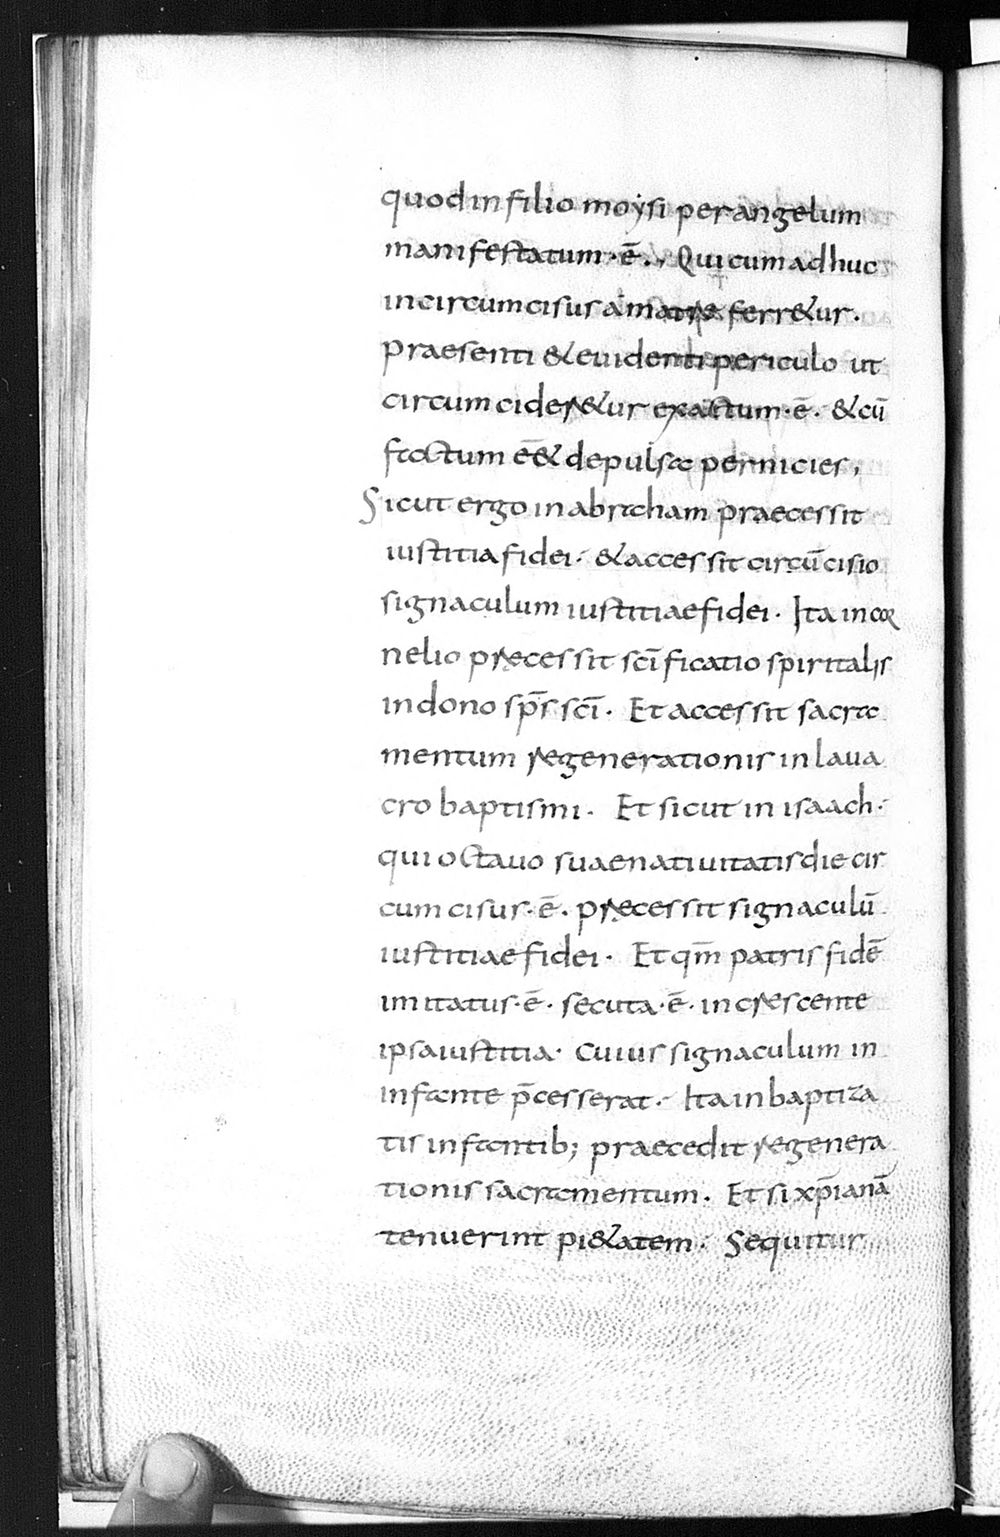 quod in filio moysi per angelum
manifestatum · ē · , Qui cum adhuc
incircumcisus a matre ferr&ur ·
praesenti & euidenti periculo ut
circumcider&ur exactum · ē · & cū
factum ē & depulsa pernicies ,
Sicut ergo in abraham praecessit
iustitia fidei · & accessit circūcisio
signaculum iustitiae fidei · Ita in cor
nelio precessit scīficatio spiritalis
in dono sp̄s scī · Et accessit sacra
mentum regenerationis in laua
cro baptismi · Et sicut in isaach ·
qui octauo suae natiuitatis die cir
cumcisus · ē · precessit signaculū
iustitiae fidei · Et qm̄ patris fidē
imitatus · ē · secuta · ē · in crescente
ipsa iustitia · cuius signaculum in
infante p̄cesserat · Ita in baptiza
tis infantib; praecedit regenera
tionis sacramentum · Et si xp̄ianā
tenuerint pi&atem · Sequitur